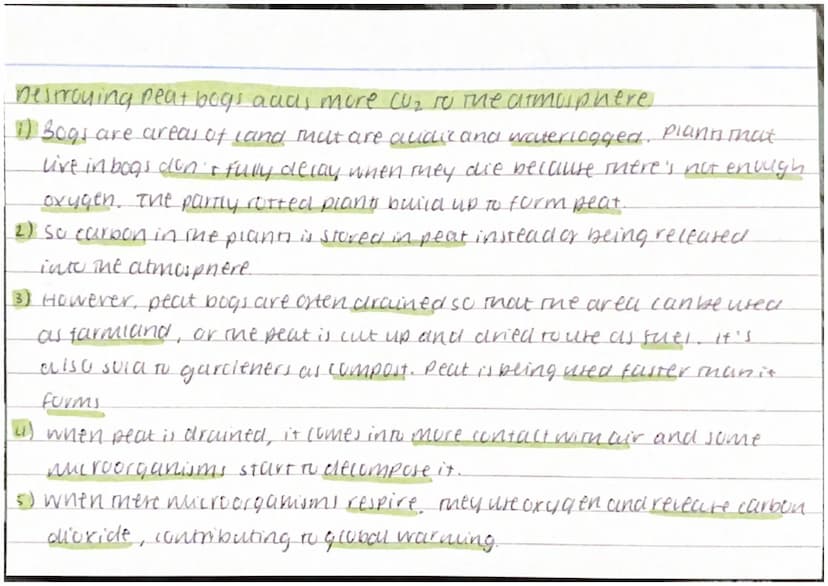 Destroying peat bogs adds more CO₂ to the atmosphere
1) Bogs are areas of land that are acidic and waterlogged. Plants that
live in bogs don't fully decay when they die because there's not enough
oxygen. The partly rotted plants build up to form peat.
2) So carbon in the plants is stored in peat instead of being released
into the atmosphere
3) However, peat bogs are often drained so that the area can be used
as farmland, or the peat is cut up and dried to use as fuel. It's
also sold to gardeners as compost. Peat is being used faster than it
forms
4) When peat is drained, it comes into more contact with air and some
microorganisms start to decompose it.
5) When these microorganisms respire, they use oxygen and release carbon
dioxide, contributing to global warming.